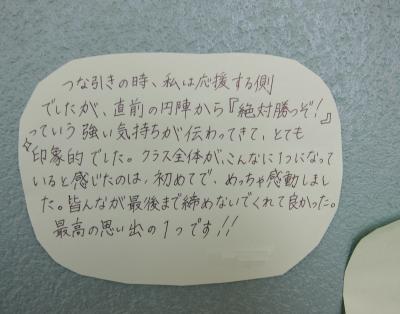 つな引きの時、私は応援する側
でしたが、直前の円陣から『絶対勝つぞ!』
っていう強い気持ちが伝わってきて、とても
印象的でした。クラス全体が、こんなに1つになって
いると感じたのは、初めてで、めっちゃ感動しまし
た。皆んなが最後まで締めないでくれて良かった。
最高の思い出の1つです!!